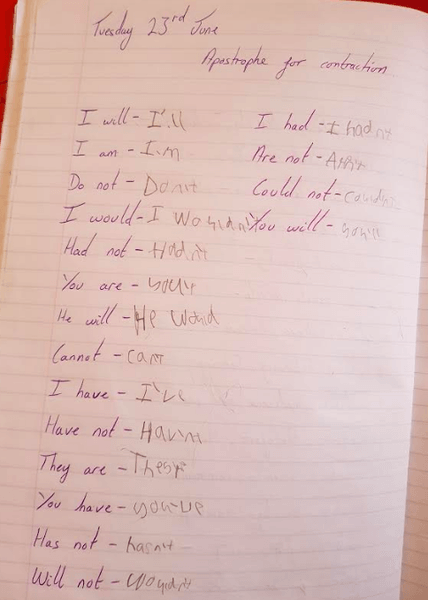 Tuesday 23rd June
Apostrophe for contraction
I will - I'll
I am - I'm
Do not - Don't
I would - I Wouldn't
Had not - Hadn't
You are -
He will - He Would
Cannot - can't
I have - I've
Have not - Hav'nt
They are -
You have - you've
Has not - hasn't
Will not - Wouldn't
I had - I hadn't
Are not -
Could not - couldn't
You will - you'll